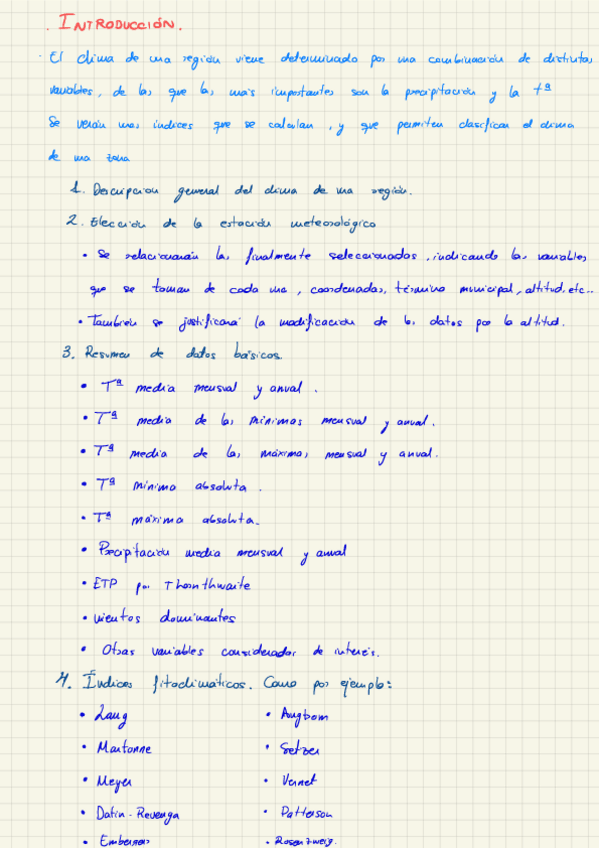 . INTRODUCCIÓN.
· El clima de una region viene determinado por una combinación de distintas
variables, de las que las más importantes son la precipitación y la tª
Se verán unos índices que se calculan, y que permiten clasificar el clima
de una zona
1. Descripcion general del clima de una region.
2. Elección de la estación meteorológica
• Se relacionarán las finalmente seleccionadas, indicando las variables
que se toman de cada una, coordenadas, término municipal, altitud, etc..
• También se justificará la modificación de los datos por la altitud.
3. Resumen de datos básicos.
• Tª media mensual y anual.
• Tª media de las mínimas mensual y anual.
• Tª media de las máximas mensual y anual.
• Tª mínima absoluta.
• Tª máxima absoluta.
• Precipitación media mensual y anual
• ETP por Thornthwaite
• vientos dominantes
• Otras variables consideradas de interés.
4. Índices fitoclimáticos. Como por ejemplo:
• Lang
• Angtrom
• Martonne
• Setzer
• Meyer
• Vernet
• Datin-Revenga
• Patterson
• Emberger
• Rosenzweig.